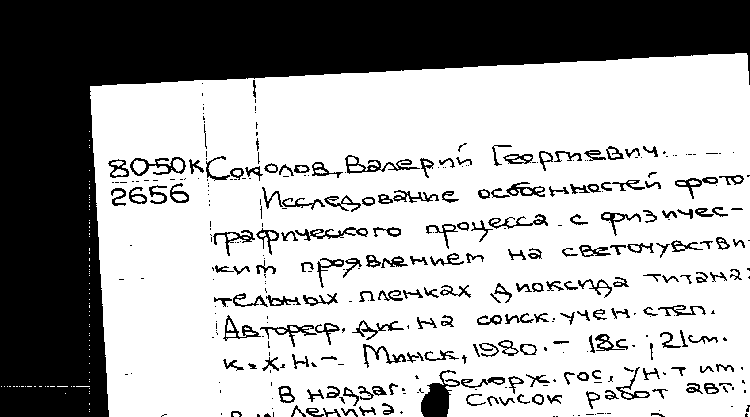 80-50К Соколов, Валерий Георгиевич.
2656 Исследование особенностей фото-
графического процесса с физичес-
ким проявлением на светочувстви-
тельных пленках диоксида титана:
Автореф. дис. на соиск. учен. степ.
к. х. н. - Минск, 1980. - 18с.; 21см.
В надзаг.: Белорус. гос. ун-т им.
В.И. Ленина. Список работ авт.: